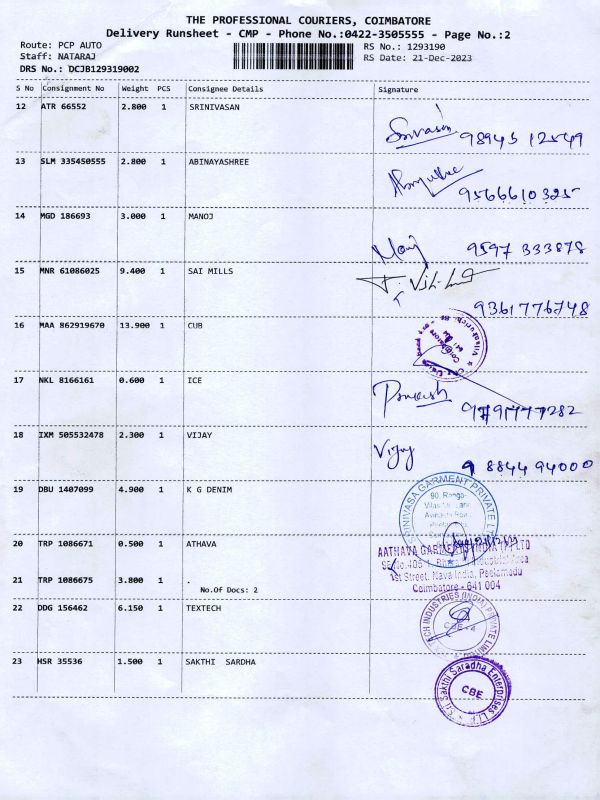 THE PROFESSIONAL COURIERS, COIMBATORE
Delivery Runsheet - CMP - Phone No.:0422-3505555 - Page No.:2
Route: PCP AUTO
RS No.: 1293190
Staff: NATARAJ
RS Date: 21-Dec-2023
DRS No.: DCJB129319002
S No Consignment No Weight PCS Consignee Details Signature
12 ATR 66552 2.800 1 SRINIVASAN
Srinivasan 98945 12549
13 SLM 335450555 2.800 1 ABINAYASHREE
9566610325
14 MGD 186693 3.000 1 MANOJ
Manoj 9597 333878
15 MNR 61086025 9.400 1 SAI MILLS
9361776748
16 MAA 862919670 13.900 1 CUB
17 NKL 8166161 0.600 1 ICE
9791777282
18 IXM 505532478 2.300 1 VIJAY
Vijay 98844 94000
19 DBU 1407099 4.900 1 K G DENIM
SRINIVASA GARMENT PRIVATE
90, Ranga
20 TRP 1086671 0.500 1 ATHAVA
AATHAVA GARMENTS INDIA (P) LTD
21 TRP 1086675 3.800 1 .
No.Of Docs: 2
1st Street, Nava India, Peelamedu
Coimbatore - 641 004
22 DDG 156462 6.150 1 TEXTECH
TECH INDUSTRIES (INDIA) PRIVATE LIMITED
CBE - 4
23 HSR 35536 1.500 1 SAKTHI SARDHA
Sri Sakthi Saradha Enterprises LLP
CBE